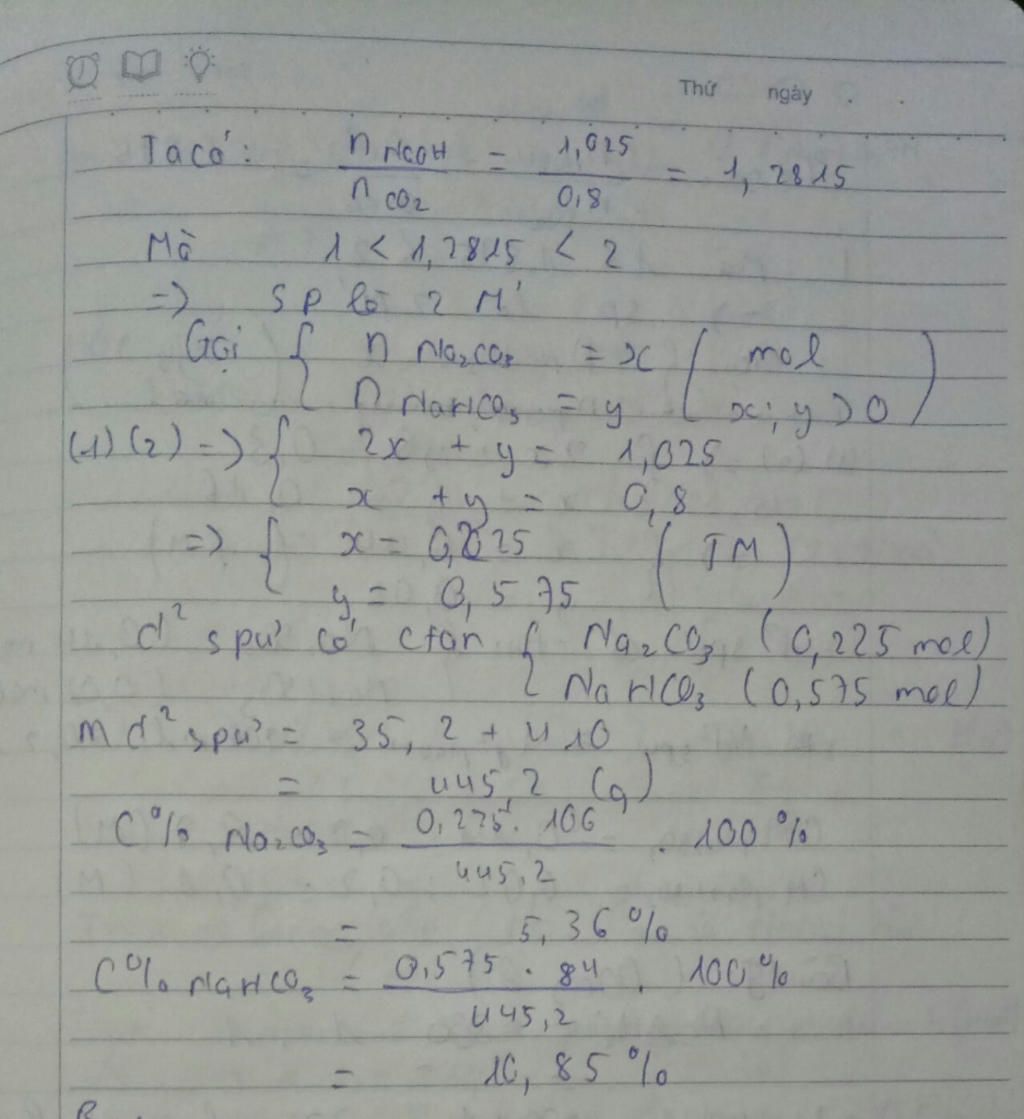 Thứ ngày . .
Ta có: n NaOH / n CO2 = 1,025 / 0,8 = 1,2815
Mà 1 < 1,2815 < 2
=> sp là 2 M'
Gọi { n Na2CO3 = x ( mol
n NaHCO3 = y x; y > 0 )
(1) (2) => { 2x + y = 1,025
x + y = 0,8
=> { x = 0,225 ( TM )
y = 0,575
d² spứ có ctan { Na2CO3 (0,225 mol)
NaHCO3 (0,575 mol)
m d² spứ = 35,2 + 410
= 445,2 (g)
C% Na2CO3 = 0,225 . 106 / 445,2 . 100%
= 5,36%
C% NaHCO3 = 0,575 . 84 / 445,2 . 100%
= 10,85%